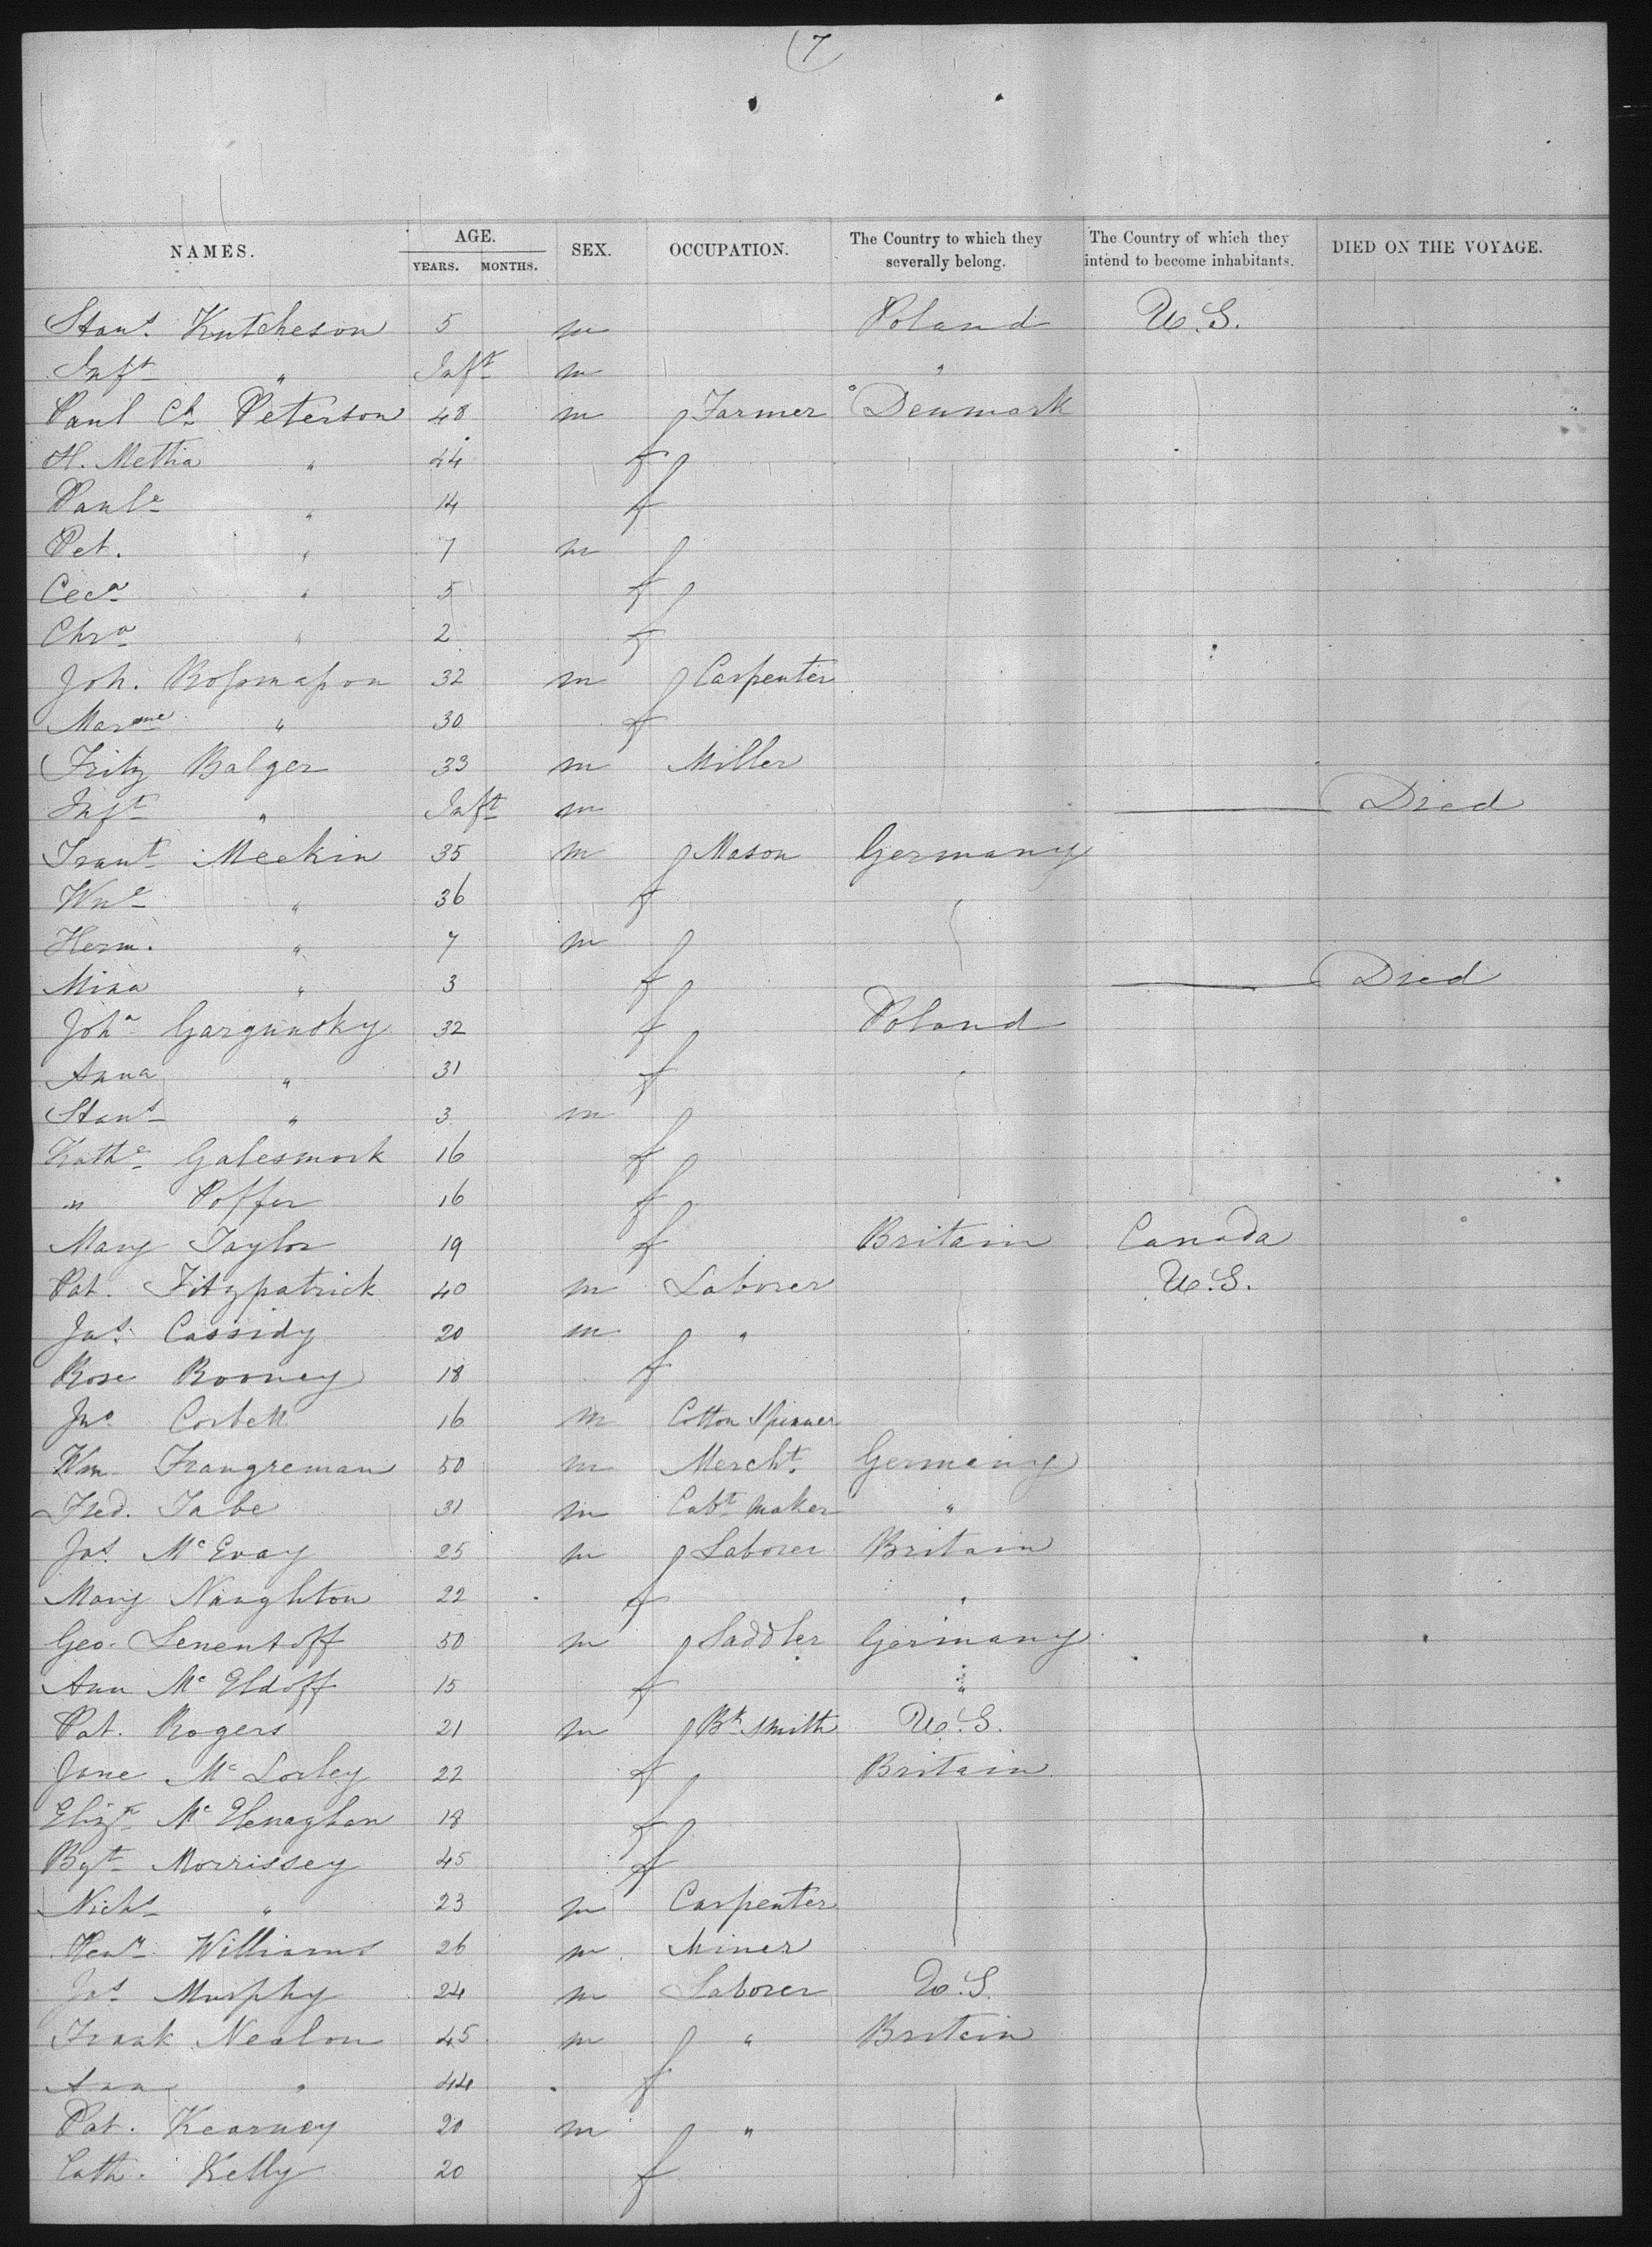 7
NAMES. AGE. YEARS. MONTHS. SEX. OCCUPATION. The Country to which they severally belong. The Country of which they intend to become inhabitants. DIED ON THE VOYAGE.
Stans. Kutcheson 5 m Poland U.S.
Inft " Inft m "
Paul Ch Peterson 48 m Farmer Denmark
H. Metha " 44 f
Paule " 14 f
Pet. " 7 m
Ceca " 5 f
Chra " 2 f
Joh. 32 m Carpenter
Marme " 30 f
Fritz Balger 33 m Miller
Inft " Inft m Died
Meekin 35 m Mason Germany
Wne " 36 f
Herm. " 7 m
Mina " 3 f Died
Joha Gargunsky 32 f Poland
Anna " 31 f
Stans " 3 m
Kathe Galesmork 16 f
" Poffer 16 f
Mary Taylor 19 f Britain Canada
Pat. Fitzpatrick 40 m Laborer U.S.
Jas. Cassidy 20 m "
Rose Rooney 18 f
Jno Corbett 16 m Cotton Spinner
Wm Frangreman 50 m Mercht. Germany
Fred. Tabe 31 m Cabt maker "
Jas. Mc Evay 25 m Laborer Britain
Mary Naughton 22 f "
Geo. Lenentoff 50 m Saddler Germany
Ann Mc Eldoff 15 f "
Pat. Rogers 21 m Bk smith U.S.
Jane Mc Lorley 22 f Britain
Eliza Mc Elenaghan 18 f
Bgt Morrissey 45 f
Nichs " 23 m Carpenter
Heny Williams 26 m Miner
Jas Murphy 24 m Laborer U.S.
Frank Nealon 45 m " Britain
Ann " 44 f
Pat. Kearney 20 m "
Cath. Kelly 20 f